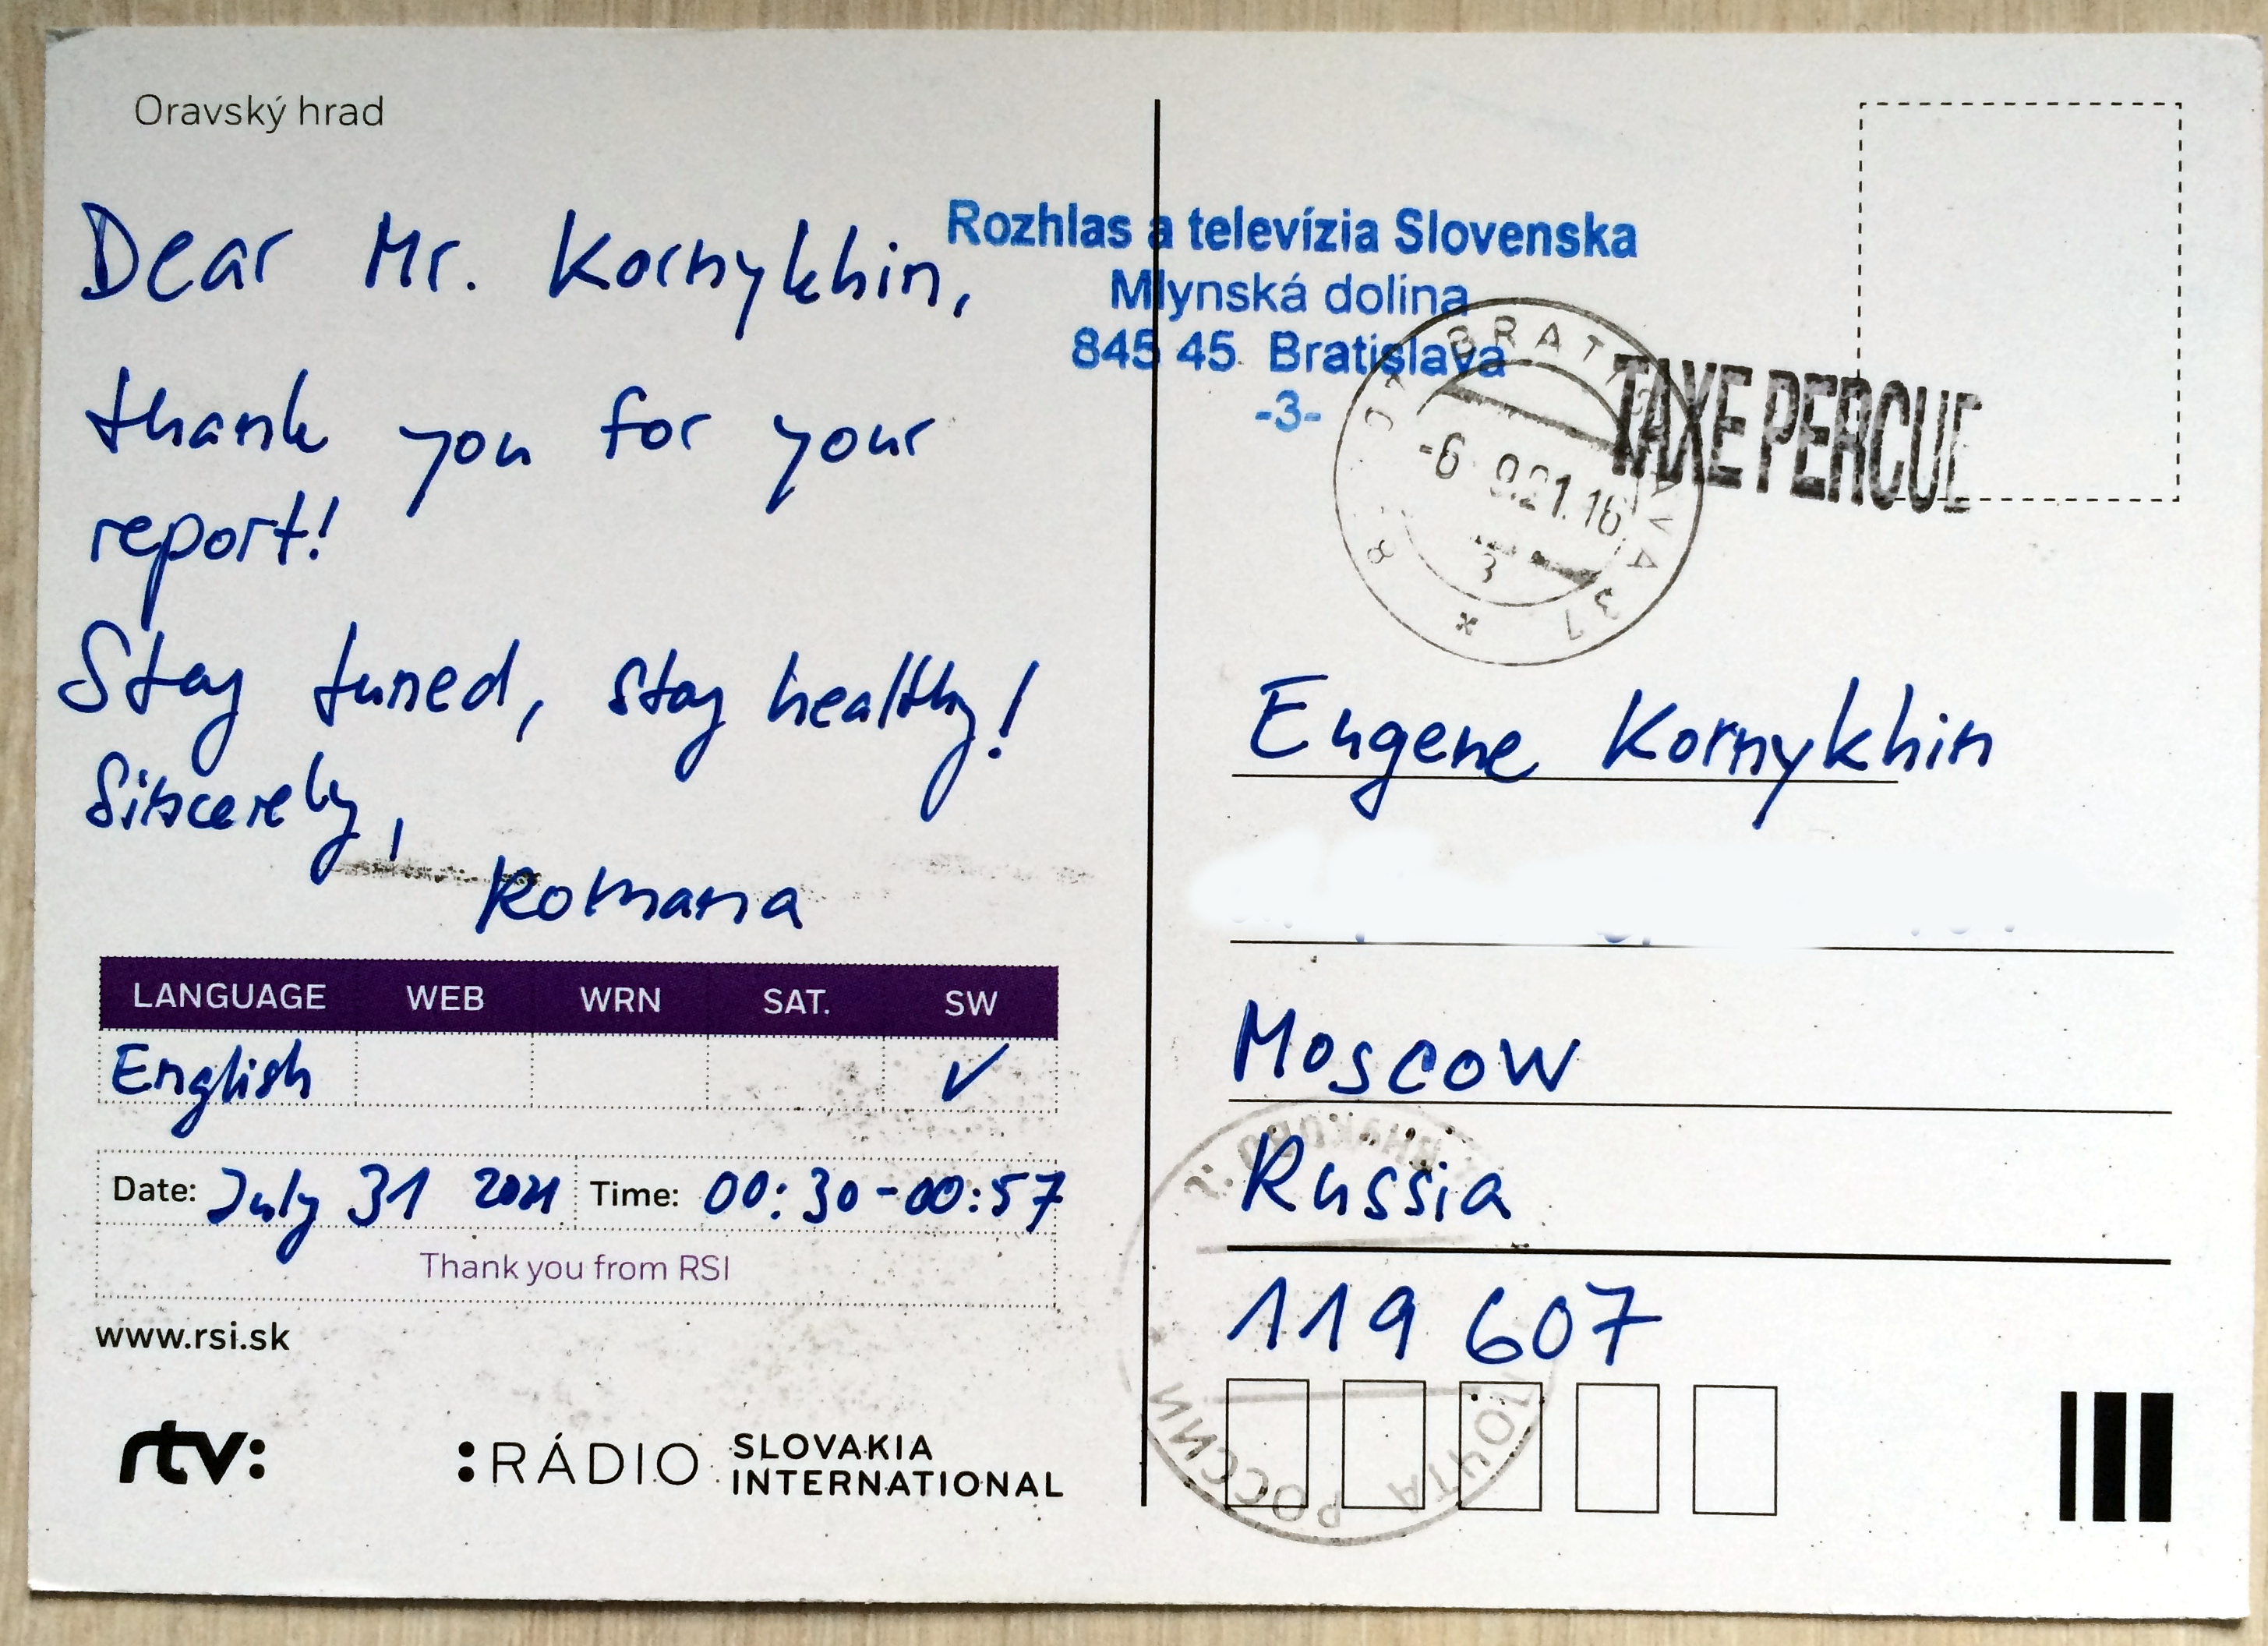 Oravský hrad
Dear Mr. Kornykhin,
thank you for your
report!
Stay tuned, stay healthy!
Sincerely,
Romana
LANGUAGE WEB WRN SAT. SW
English ✓
Date: July 31 2021 Time: 00:30-00:57
Thank you from RSI
www.rsi.sk
rtv:
:RÁDIO SLOVAKIA
INTERNATIONAL
Rozhlas a televízia Slovenska
Mlynská dolina
845 45 Bratislava
-3-
BRATISLAVA 37
-6. 9.21.16
3
TAXE PERCUE
Eugene Kornykhin
Moscow
Russia
119 607
ПОЧТА РОССИИ